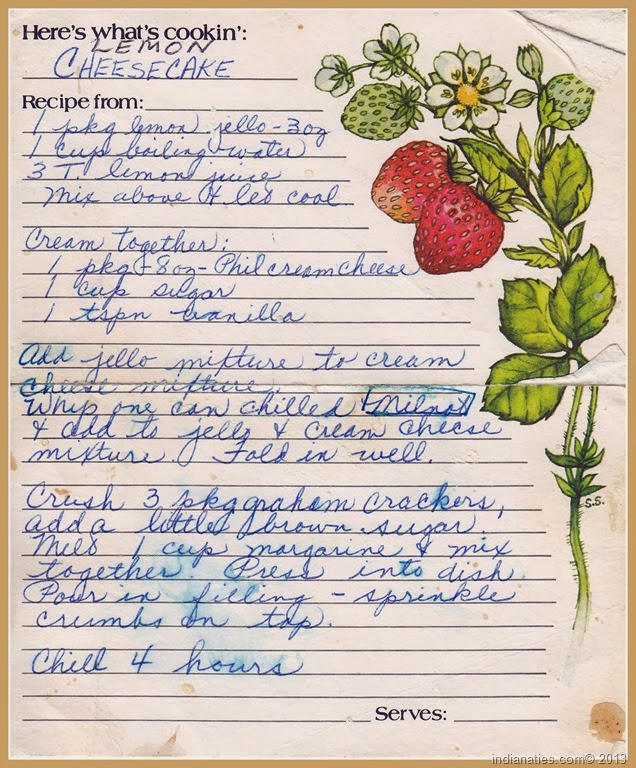 Here's what's cookin':
LEMON
CHEESECAKE
Recipe from:
1 pkg lemon jello - 3oz
1 cup boiling water
3 T. lemon juice
Mix above & let cool.
Cream together:
1 pkg - 8oz - Phil cream cheese
1 cup sugar
1 tspn vanilla
Add jello mixture to cream
cheese mixture.
Whip one can chilled Milnot
& add to jello & cream cheese
mixture. Fold in well.
Crush 3 pkg graham crackers,
add a little brown sugar.
Melt 1 cup margarine & mix
together. Press into dish.
Pour in filling - sprinkle
crumbs on top.
Chill 4 hours
Serves:
S.S.
indianaties.com© 2013